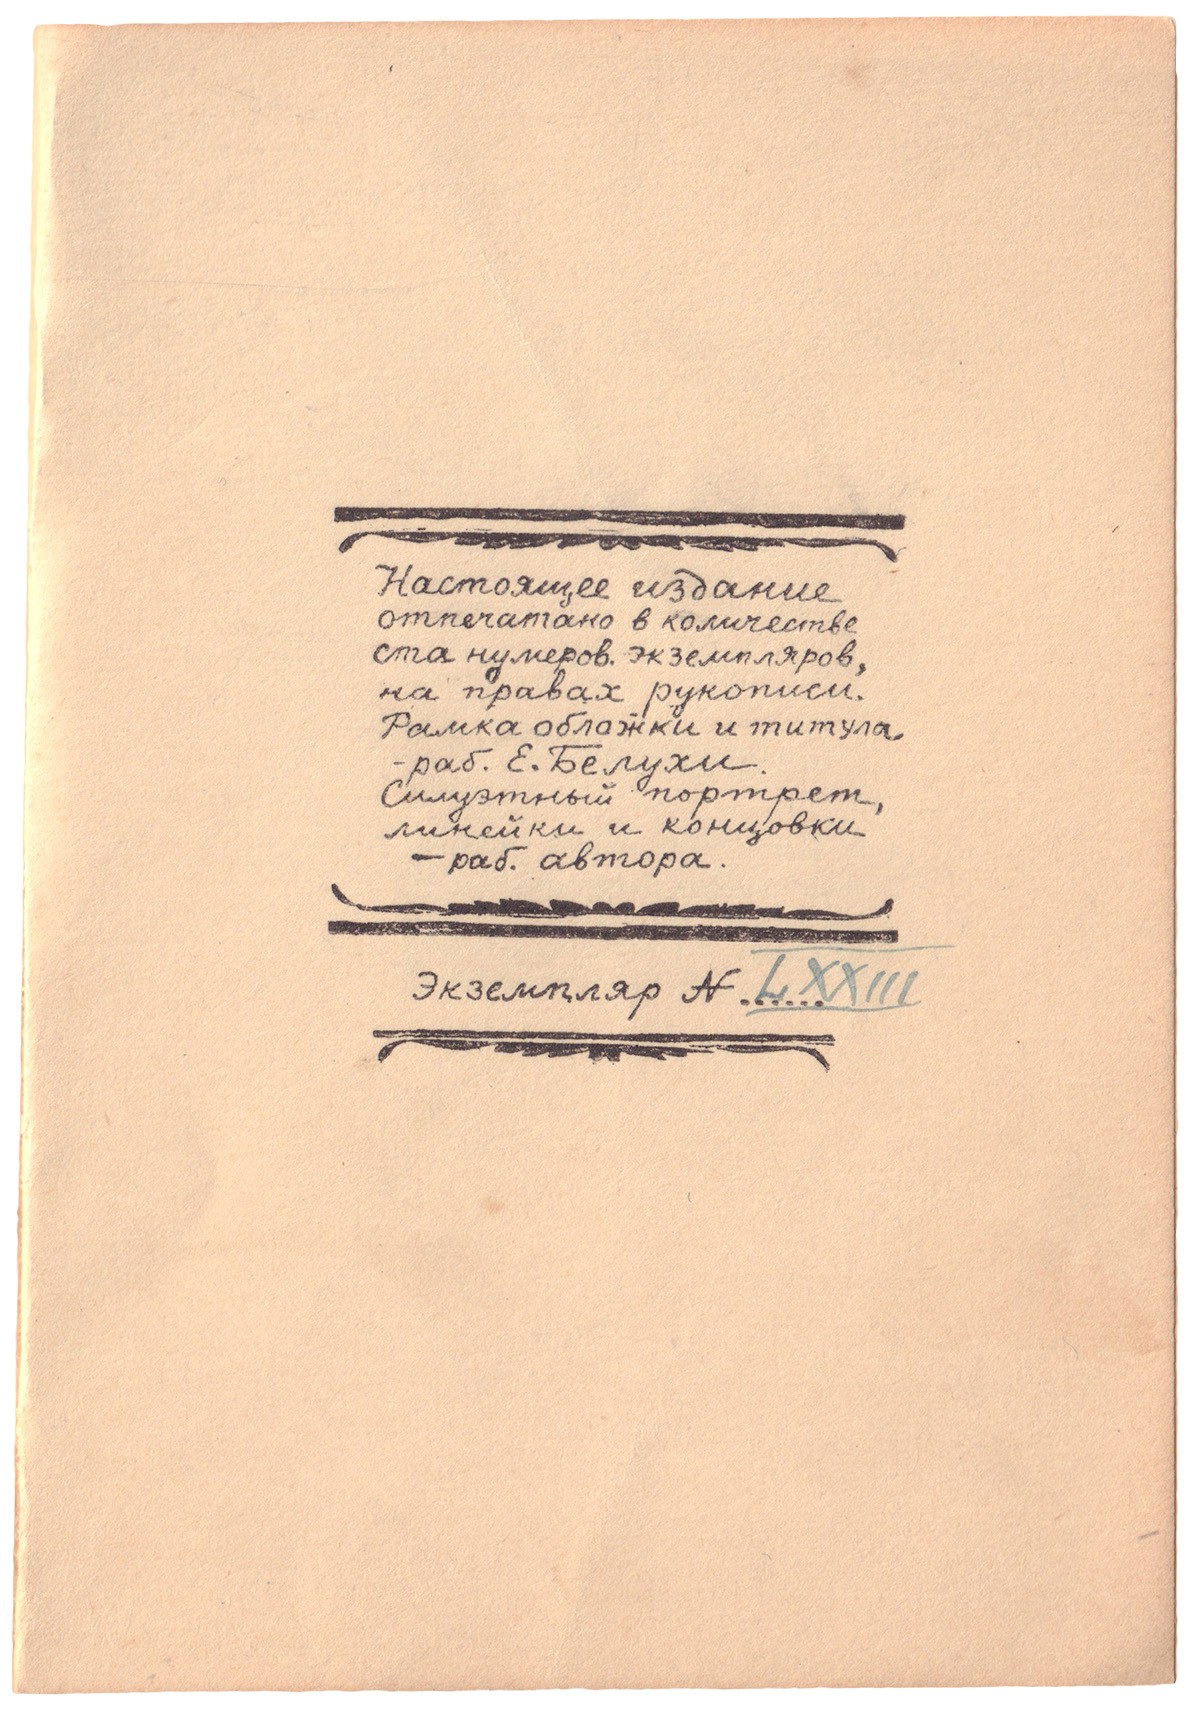 Настоящее издание
отпечатано в количестве
ста нумеров. экземпляров,
на правах рукописи.
Рамка обложки и титула
-раб. Е. Белухи.
Силуэтный портрет,
линейки и концовки
— раб. автора.
Экземпляр N ...... LXXIII